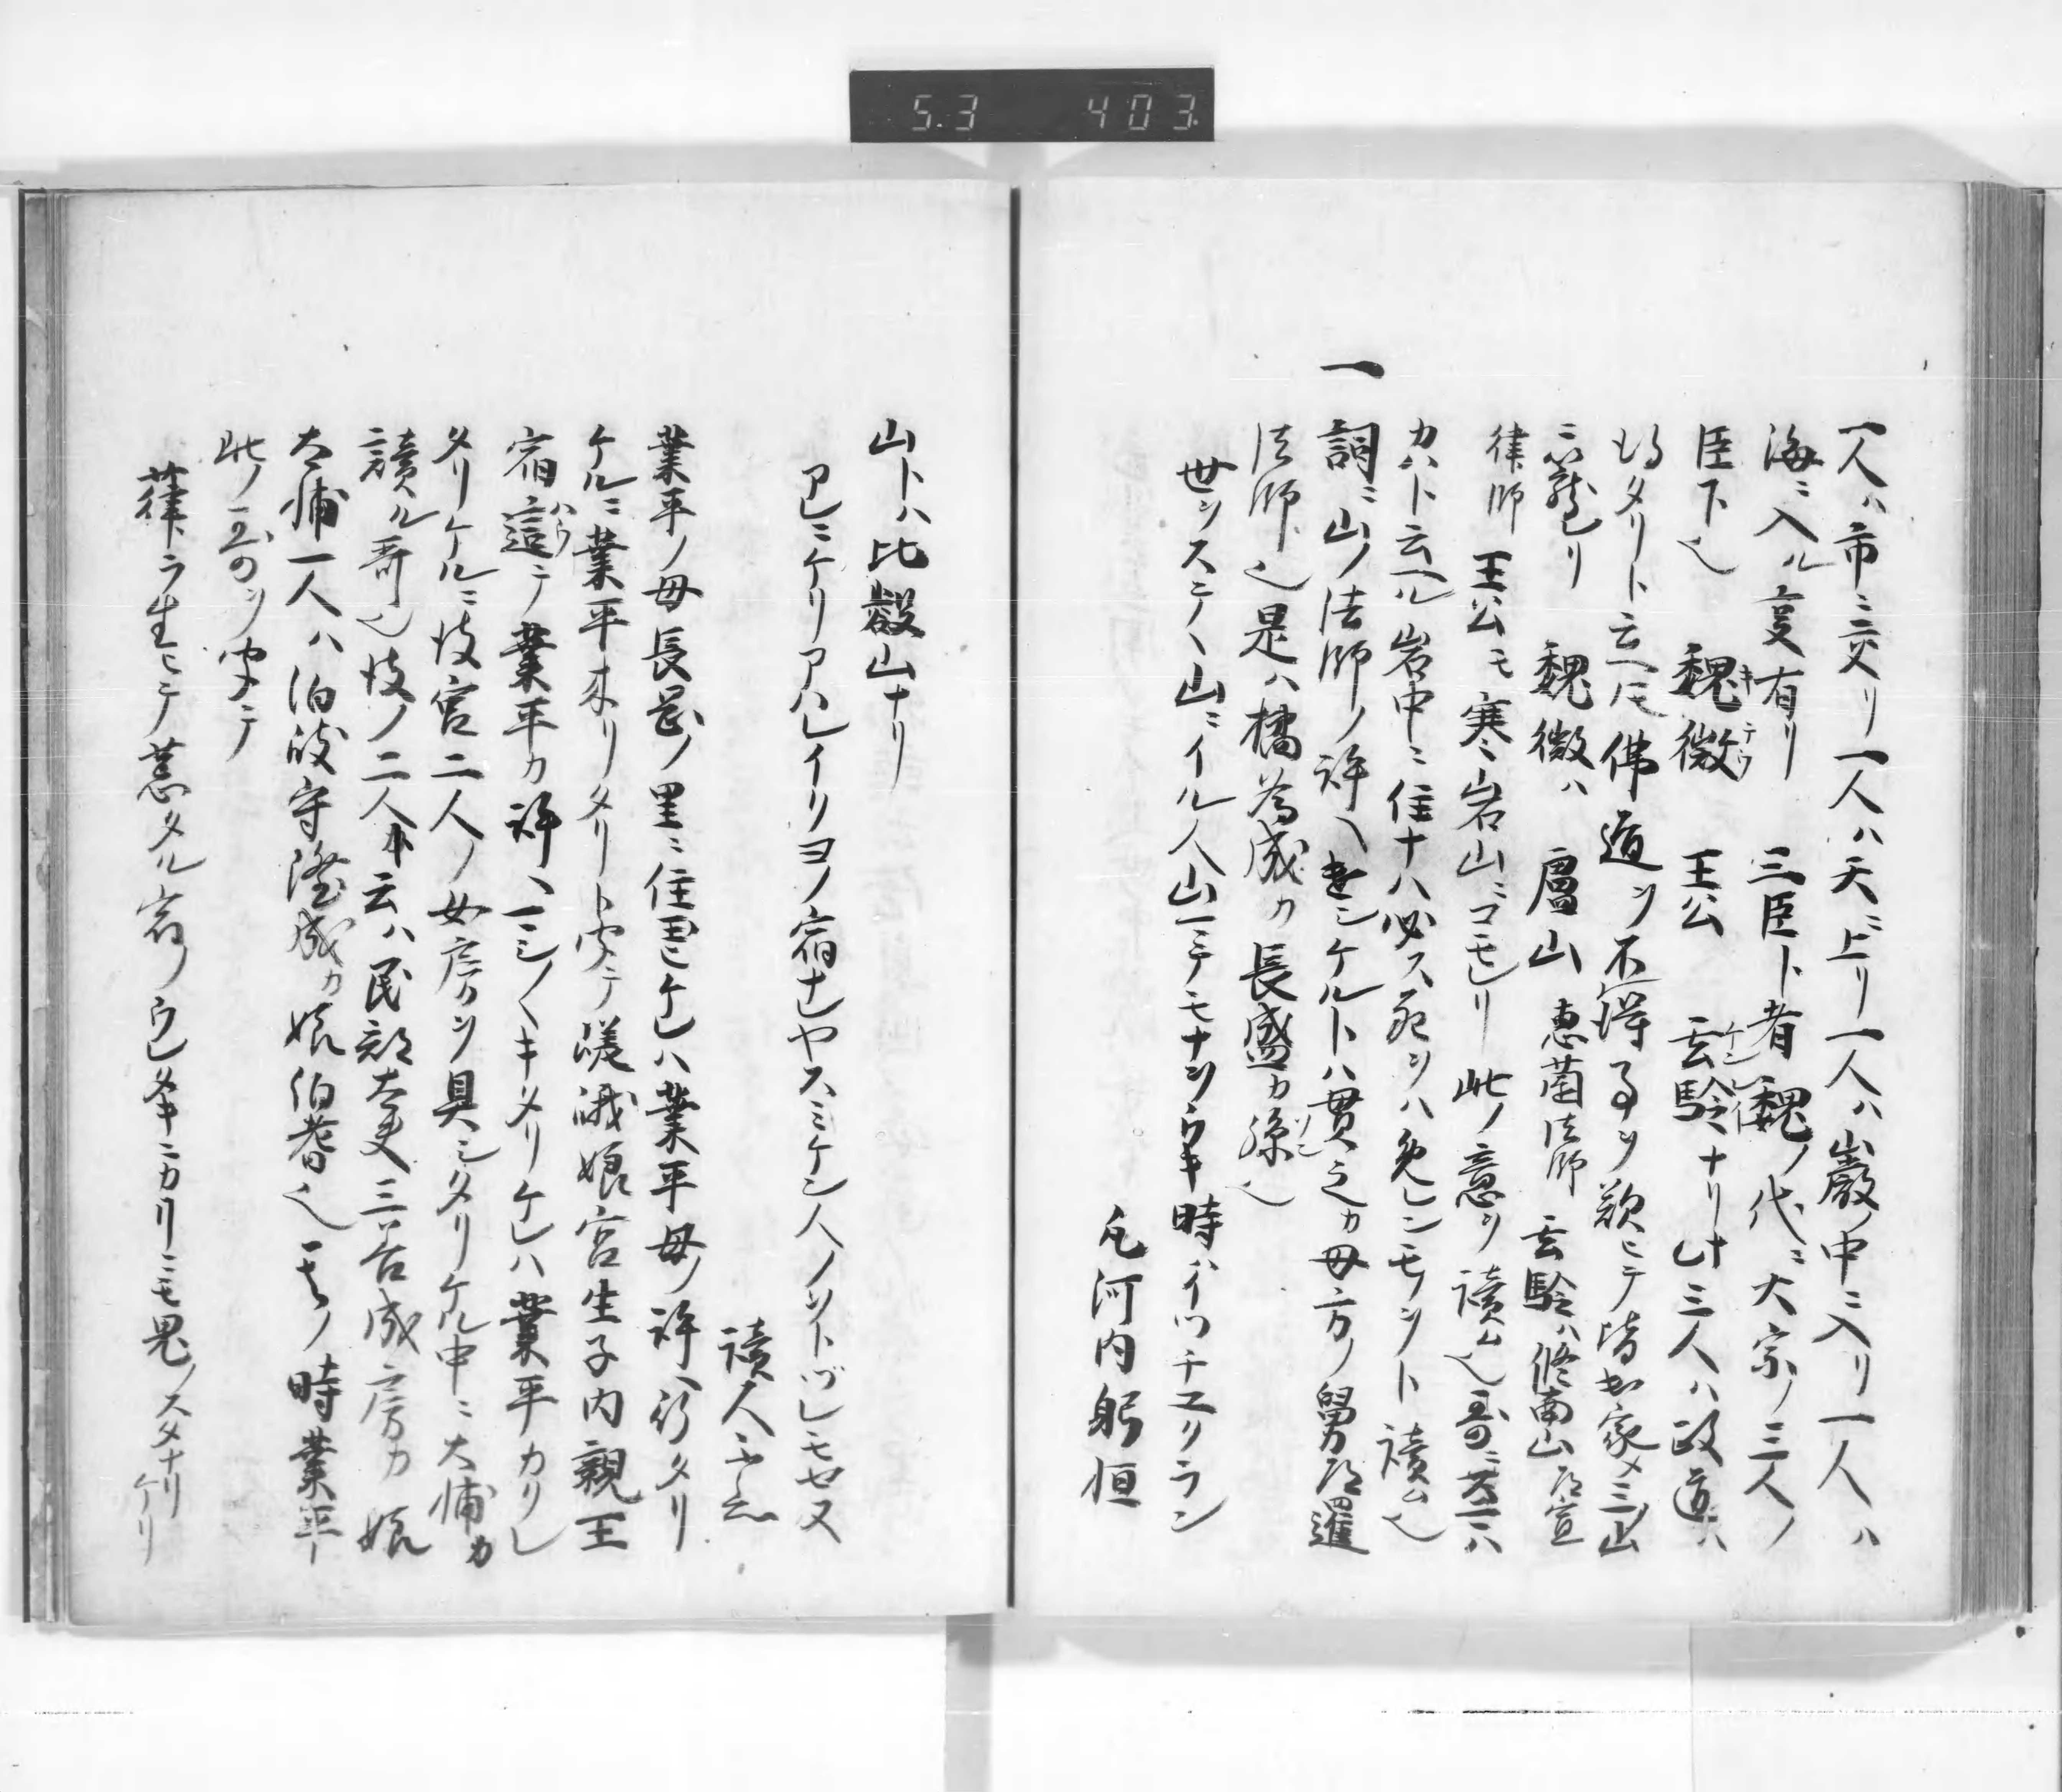 5.3 403
一人ハ市ニ交リ一人ハ天ニ上リ一人ハ巖ノ中ニ入リ一人ハ
海ニ入ル変有リ 三臣ト者魏ノ代ニ大宗ノ三人ノ
臣下也 魏徴 王公 玄齢ナリ此三人ハ政道ハ
得タリト云ヘ圧佛道ヲ不得事ヲ歎ヒテ皆出家メ三山
ニ籠レリ 魏徴ハ 廬山 恵薗法師 玄齢ハ修南山 道宣
律師 王公モ寒岩山ニコモレリ 此ノ意ヲ讀ム也哥ニ
カハト云ヘル岩中ニ住ナハ必ス死ヲハ免レンモノヲト讀ム也
一 詞ニ山ノ法師ノ許ヘ遣シケルトハ貫之カ母方ノ舅
法師也是ハ橘為成カ長盛カ孫也
世ヲステヽ山ニイル人山ニテモナヲウキ時ハイツチユクラン
凡河内躬恒
山トハ比叡山ナリ
アレニケリアハレイクヨノ宿ナレヤスミケン人ノヲトツレモセヌ
讀人不知
業平ノ母長岡ノ里ニ住玉ヒケレハ業平母ノ許ヘ行タリ
ケルニ業平来リタリト聞テ嵯峨娘宮生子内親王
宿這テ業平カ許ヘ一シノヽキタリケレハ業平カクレ
タリケルニ彼宮二人ノ女房ヲ具シタリケル中ニ大輔カ
讀ル哥也彼ノ二人ト云ハ民部大夫三吉成房カ娘
大輔一人ハ伯岐守隆成カ娘伯耆也其ノ時業平
此ノ哥ヲ聞テ
葎ラ生ヒテ荒タル宿ノウレタキニカリニモ鬼ノスタナリケリ